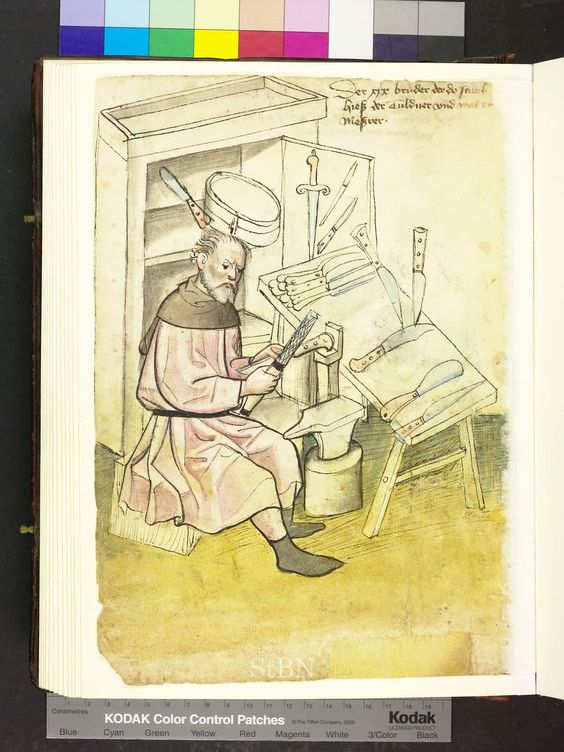 Der xix bruder der do starb
hieß der Culdner und was ein
Meßrer.
StBN
Centimetres
1 2 3 4 5 6 7 8 9 10 11 12 13 14 15 16 17 18 19
KODAK Color Control Patches
© The Tiffen Company, 2000
Kodak
LICENSED PRODUCT
Blue Cyan Green Yellow Red Magenta White 3/Color Black